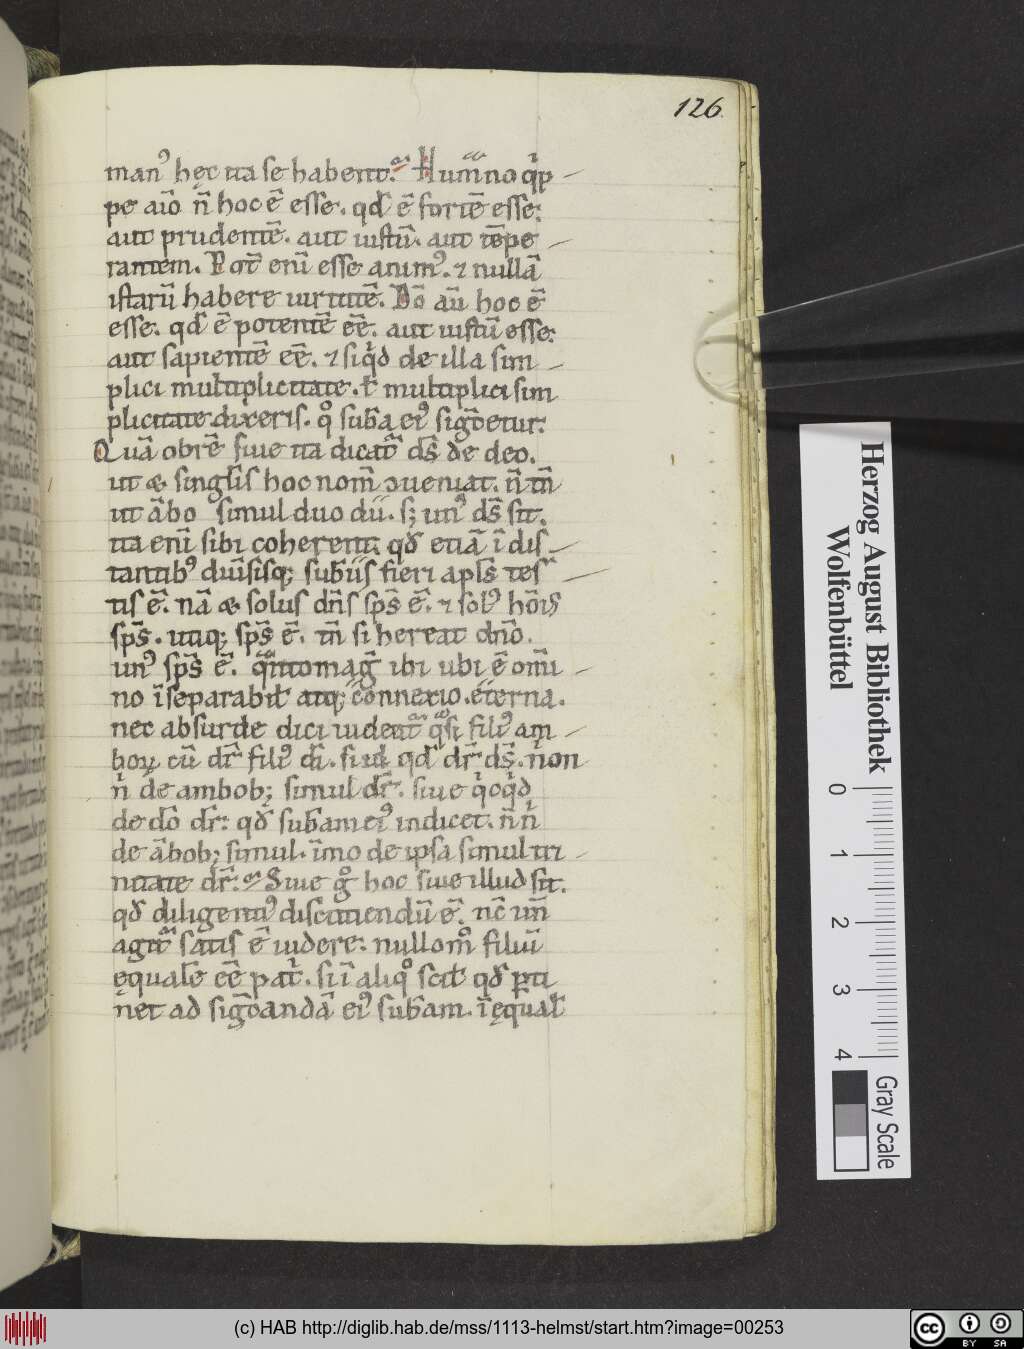 126
manꝰ hęc ita se habent. Hum̃no q̇p
pe aĩo ñ hoc ẽ esse. qd̃ ẽ fortẽ esse:
aut prudentẽ. aut iustũ. aut tẽpe
rantem. Pot̃ enĩ esse animꝰ. ⁊ nullã
istarũ habere uirtutẽ. Dõ aũ hoc ẽ
esse. qd̃ ẽ potentẽ eẽ. aut iustũ esse:
aut sapientẽ eẽ. ⁊ siq̇d de illa sim
plici multiplicitate. ł multiplici sim
plicitate dixeris. qͦ suba eiꝰ sigc̃etur:
Quã obrẽ siue ita dicat̃ ds̃ de deo.
ut & singlis hoc nom̃ ꝯueniat. ñ tñ
ut ãbo simul duo dii. s; unꝰ ds̃ sit.
ita enĩ sibi coherent. qd̃ etiã ĩ dis
tantibꝰ diũsisq; subiis fieri apls̃ tes
tis ẽ. nã & solus dñs sps̃ ẽ. ⁊ solꝰ hõis
sps̃. utiq; sps̃ ẽ. tñ si hereat dño.
unꝰ sps̃ ẽ. q̃ntomag̃ ibi ubi ẽ omĩ
no ĩseparabil atq; connexio. eterna.
nec absurde dici uideat̃ q̃si filiꝰ am
boꝝ cũ dr̃ filiꝰ dĩ. si id qd̃ dr̃ ds̃. non
ñ de ambob; simul dr̃. siue q̇cq̇d
de dõ dr̃: qd̃ subam eiꝰ indicet. ñ ñ
de ãbob; simul. ĩmo de ipsa simul tri
nitate dr̃. Siue gͦ hoc siue illud sit.
qd̃ diligentiꝰ discutiendũ ẽ. nc̃ uñ
agit̃ satis ẽ uidere: nullomͦ filiũ
ęqualẽ eẽ pat̃. si ĩ aliqͦ scil qd̃ ꝑti
net ad sigc̃andã eiꝰ subam. ĩęqual
Herzog August Bibliothek
Wolfenbüttel
0 1 2 3 4
Gray Scale
(c) HAB http://diglib.hab.de/mss/1113-helmst/start.htm?image=00253
cc BY SA